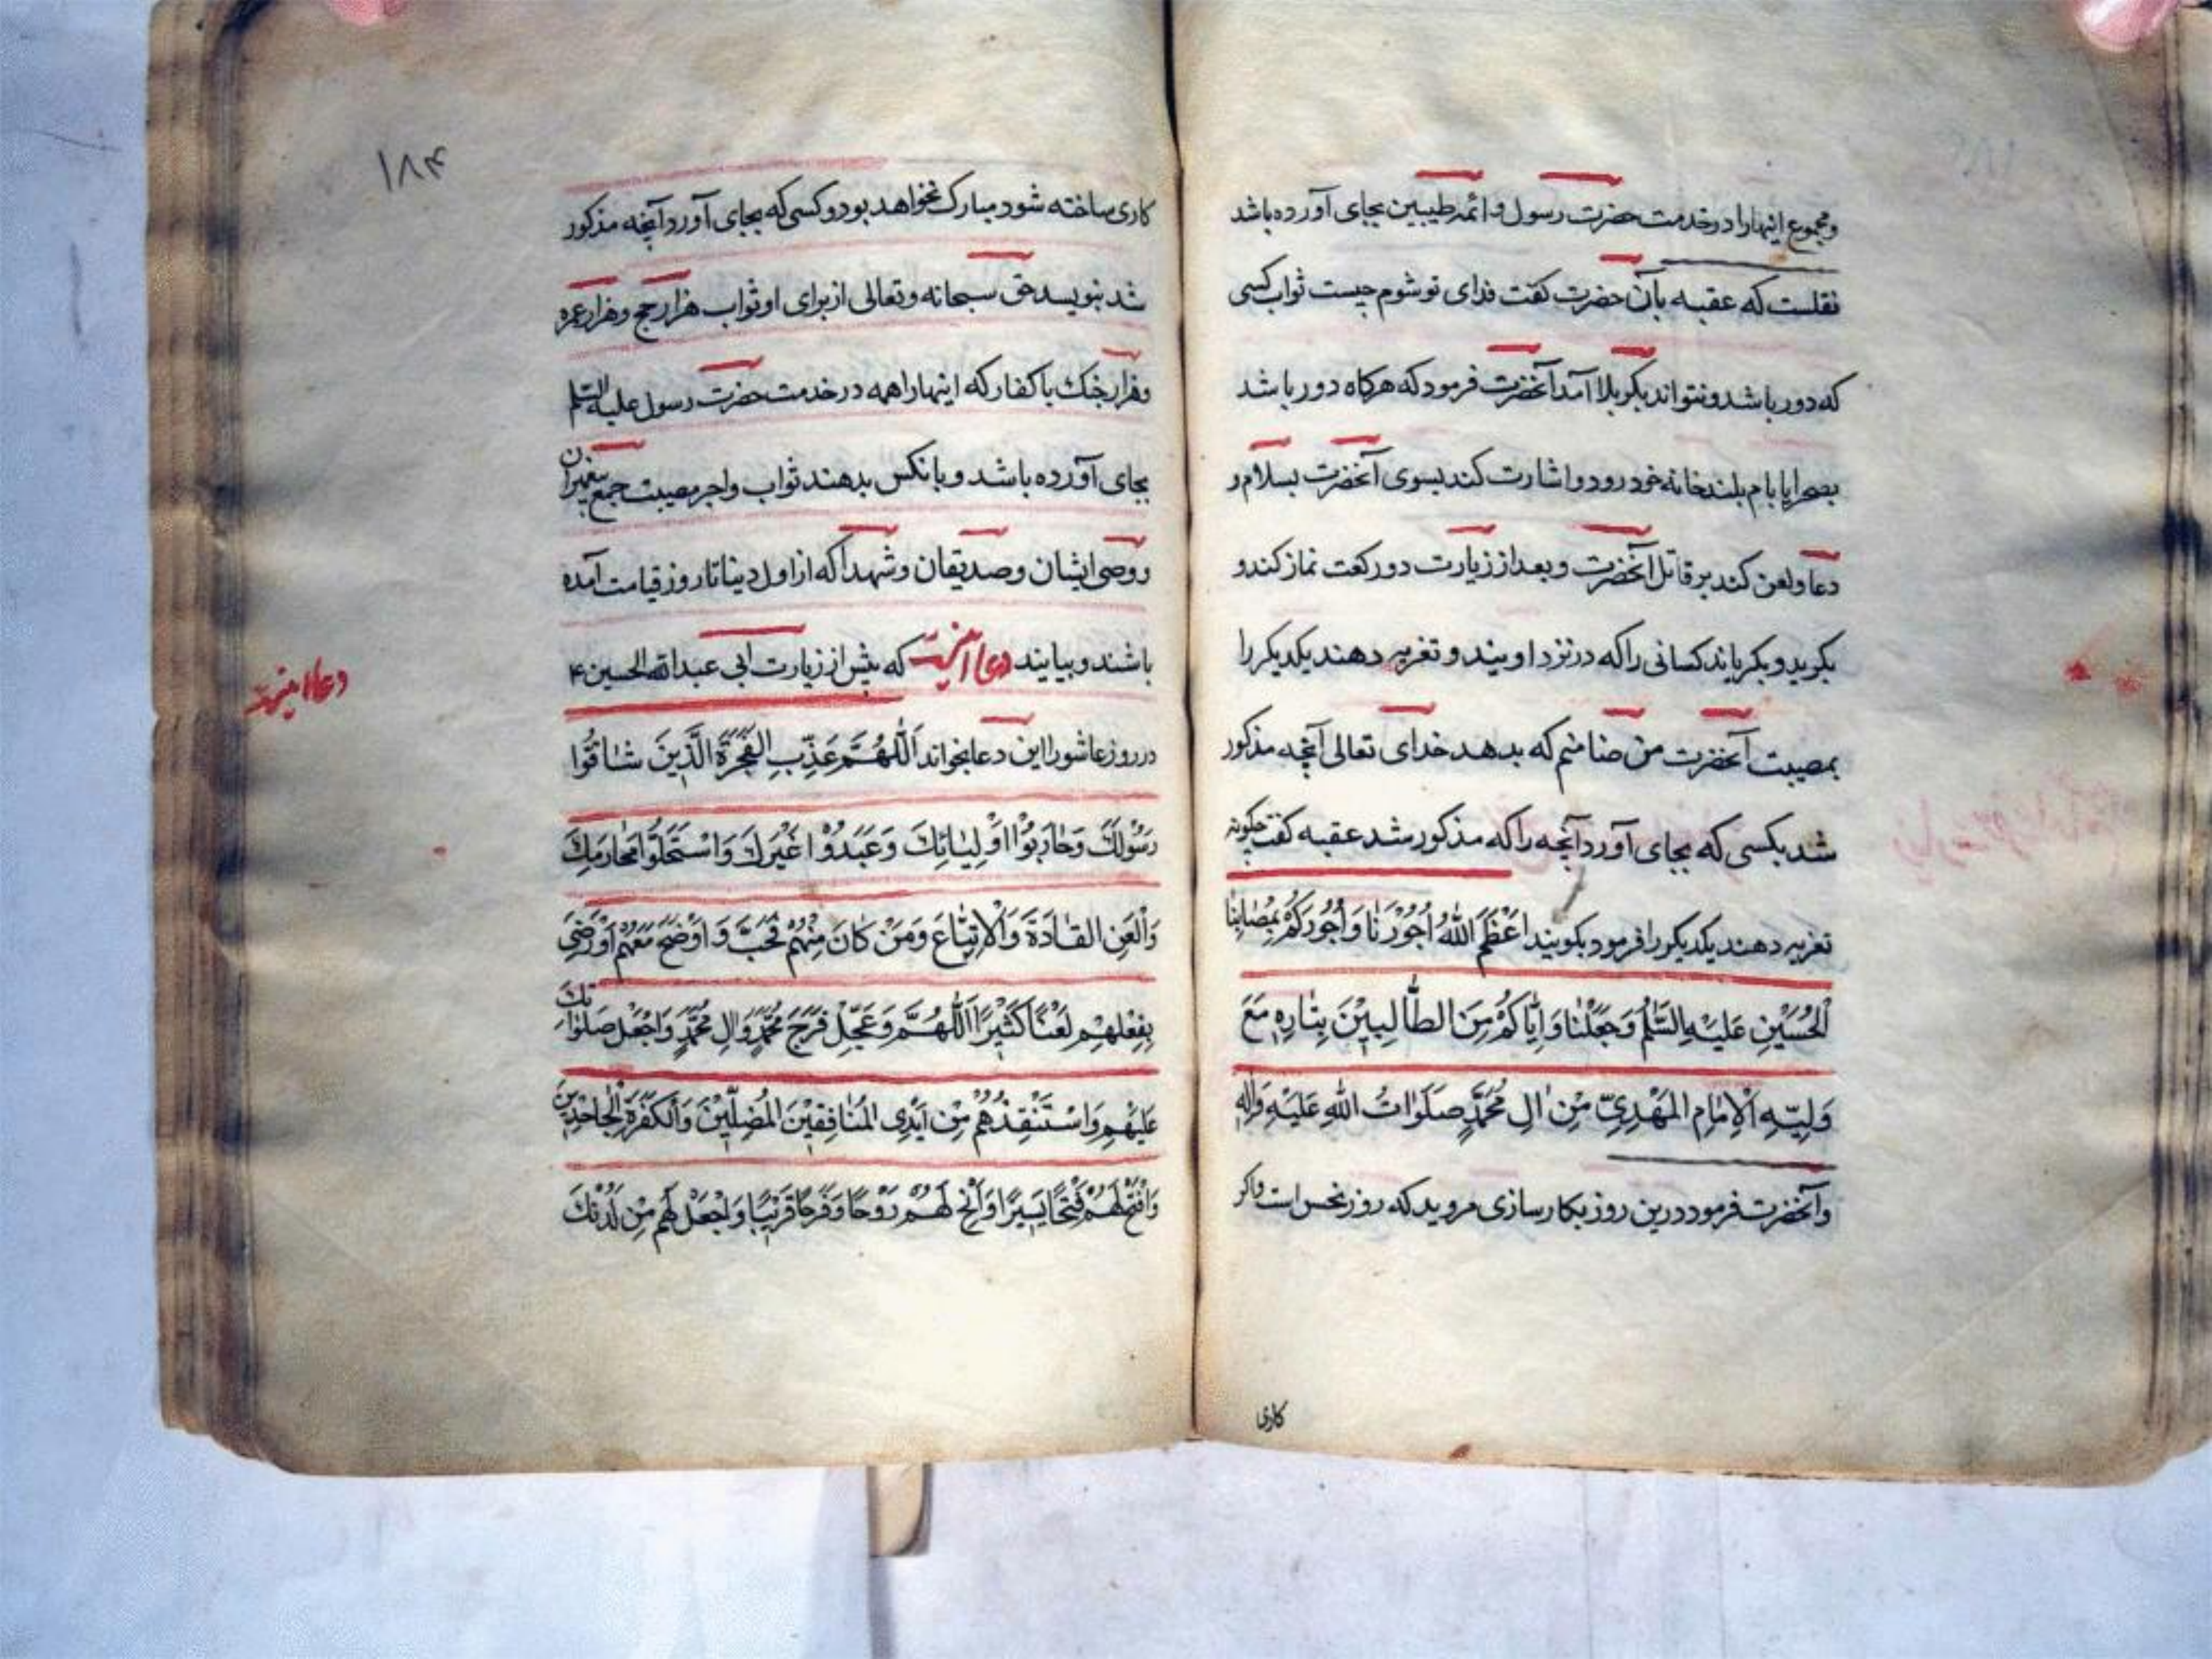 ومجموع اینهارا درخدمت حضرت رسول و ائمه طیبین بجای آورده باشد
نقلست که عقبه بآن حضرت کفت فدای تو شوم چیست ثواب کسی
که دور باشد ونتواند بکربلا آمد آنحضرت فرمود که هرکاه دور باشد
بصحرا یا بام بلند خانه خود رود واشارت کند بسوی آنحضرت بسلام و
دعا ولعن کند بر قاتل آنحضرت و بعد از زیارت دو رکعت نماز کند و
بکرید و بکریاند کسانی را که در نزد او بیند و تعزیه دهند یکدیکر را
بمصیبت آنحضرت من ضامنم که بدهد خدای تعالی آنچه مذکور
شد بکسی که بجای آورد آنچه را که مذکور شد عقبه کفت چکونه
تعزیه دهند یکدیکر را فرمود بکویند اَعْظَمَ اللّٰهُ اُجُوْرَنَا وَاُجُوْرَكُمْ بِمُصٰابِنٰا
اَلْحُسَيْنِ عَلَيْهِ السَّلٰمُ وَجَعَلْنٰا وَاِيّٰاكُمْ مِنَ الطّٰالِبِيْنَ بِثٰارِهِ مَعَ
وَلِيِّهِ الْاِمٰامِ الْمَهْدِيِّ مِنْ اٰلِ مُحَمَّدٍ صَلَوٰاتُ اللّٰهِ عَلَيْهِ وَاٰلِهِ
وآنحضرت فرمود درین روز بکارسازی مروید که روز نحس است واکر
کاری
۱۸۴
کاری ساخته شود مبارک نخواهد بود وکسی که بجای آورد آنچه مذکور
شد بنویسد حق سبحانه وتعالی از برای او ثواب هزار حج وهزار عمره
وهزار جنک با کفار که اینهارا همه در خدمت حضرت رسول علیه السلم
بجای آورده باشد و بانکس بدهند ثواب واجر مصیبت جمع پیغمبران
و وصی ایشان وصدیقان وشهدا که از اول دینا تا روز قیامت آمده
باشند و بیایند دعا اینست که پیش از زیارت ابی عبدالله الحسین ۴
دعا اینست
در روز عاشورا این دعا بخواند اَللّٰهُمَّ عَذِّبِ الفَجَرَةَ الَّذِيْنَ شٰاقُّوا
رَسُوْلَكَ وَحٰارَبُوْا اَوْلِيٰائِكَ وَعَبَدُوْا غَيْرَكَ وَاسْتَحَلُّوْا مَحٰارِمَكَ
وَالْعَنِ القٰادَةَ وَالْاَتِبٰاعَ وَمَنْ كٰانَ مِنْهُمْ فَخَبَّ وَاَوْضَعَ مَعَهُمْ اَوْ رَضِيَ
بِفِعْلِهِمْ لَعْنًا كَثِيْرًا اَللّٰهُمَّ وَعَجِّلْ فَرَجَ مُحَمَّدٍ وَاٰلِ مُحَمَّدٍ وَاجْعَلْ صَلَوٰاتِكَ
عَلَيْهِمْ وَاسْتَنْقِذْهُمْ مِنْ اَيْدِي الْمُنٰافِقِيْنَ الْمُضِلِّيْنَ وَالْكَفَرَةِ الْجٰاحِدِيْنَ
وَافْتَحْ لَهُمْ فَتْحًا يَسِيْرًا وَاَتِحْ لَهُمْ رَوْحًا وَفَرَجًا قَرِيْبًا وَاجْعَلْ لَهُمْ مِنْ لَدُنْكَ